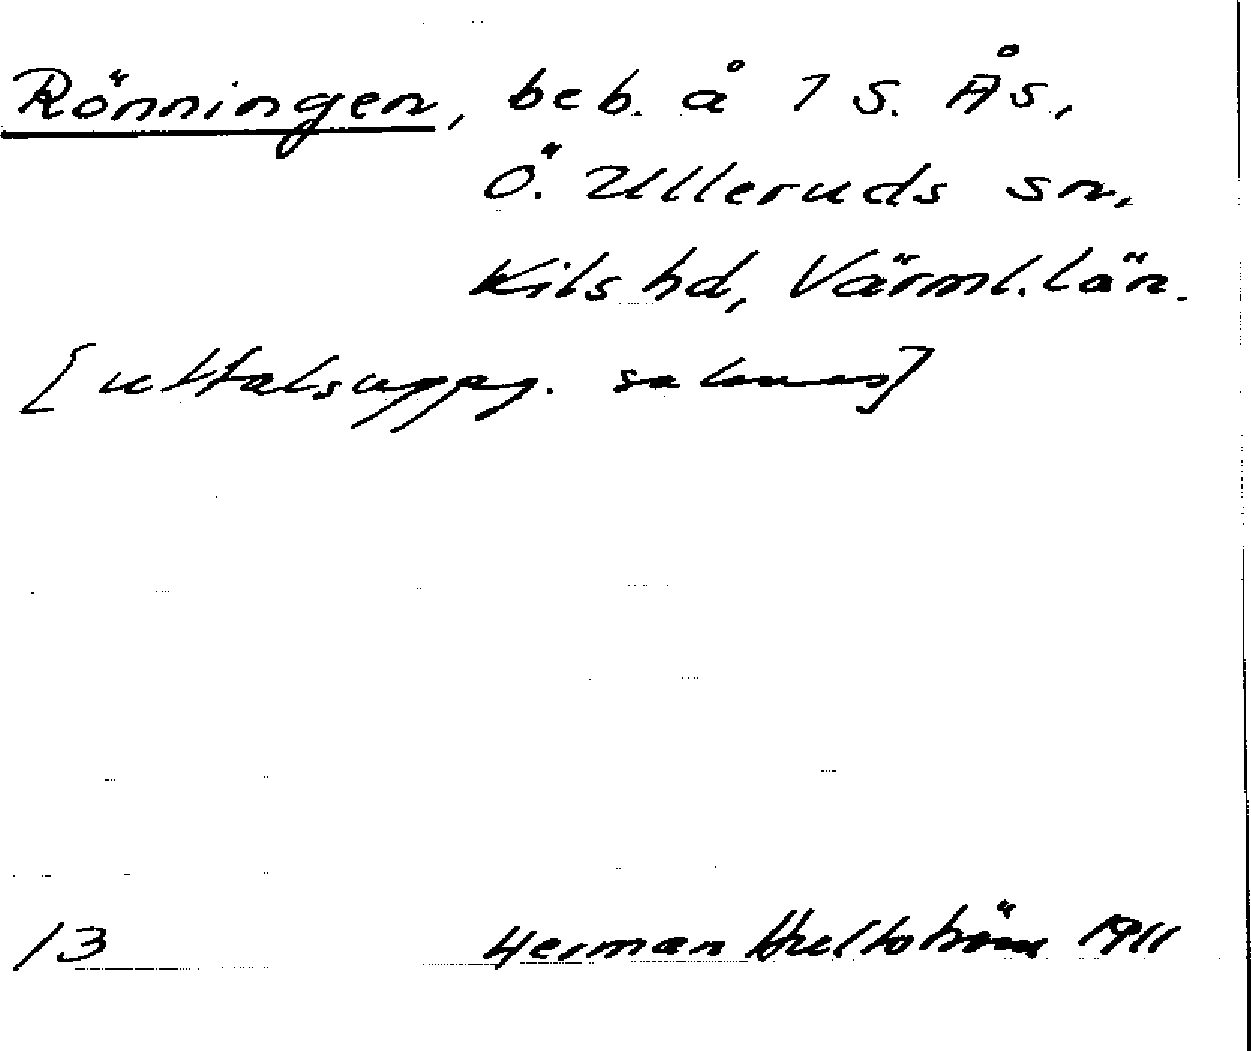 Rönningen, beb. å 1 S. Ås,
Ö. Ulleruds sn,
Kils hd, Värml. län.
[uttalsuppg. saknas]
13 Herman Hultström 1911